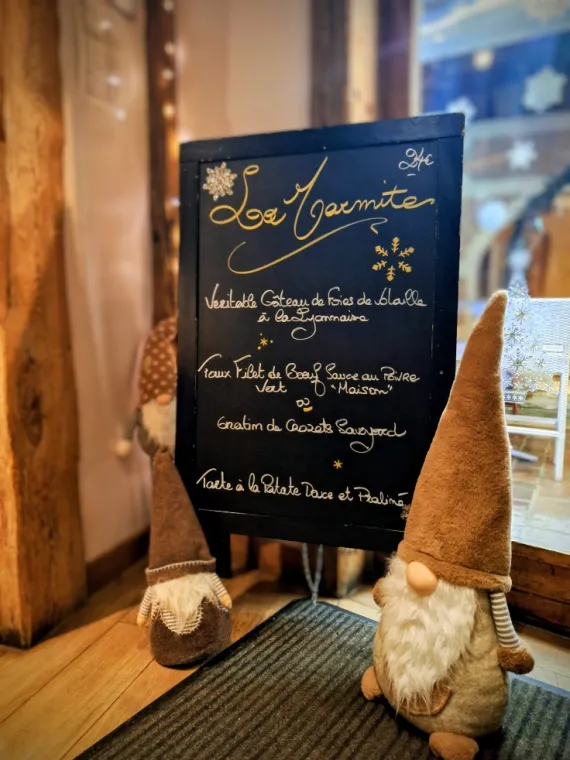 24€
La Marmite
Veritable Gâteau de Foies de Volaille
à la Lyonnaise
Faux Filet de Bœuf Sauce au Poivre
Vert "Maison"
ou
Gratin de Crozets Savoyard
Tarte à la Patate Douce et Praliné